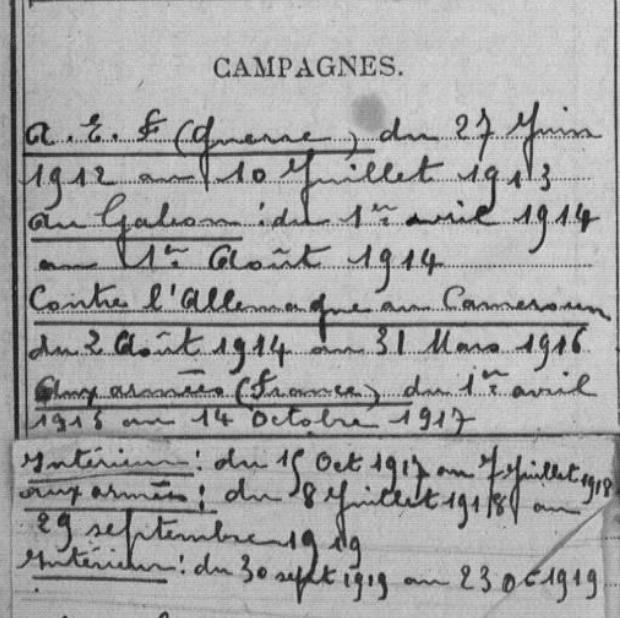 CAMPAGNES.
A.E.F (Guerre) du 27 Juin
1912 au 10 Juillet 1913
au Gabon : du 1er avril 1914
au 1er Août 1914
Contre l'Allemagne au Cameroun
du 2 Août 1914 au 31 Mars 1916
Aux armées (France) du 1er avril
au 14 Octobre 1917
Intérieur : du 15 Oct 1917 au 7 Juillet 1918
aux armées : du 8 Juillet 1918 au
29 septembre 1919
Intérieur : du 30 sept 1919 au 23 Oct 1919